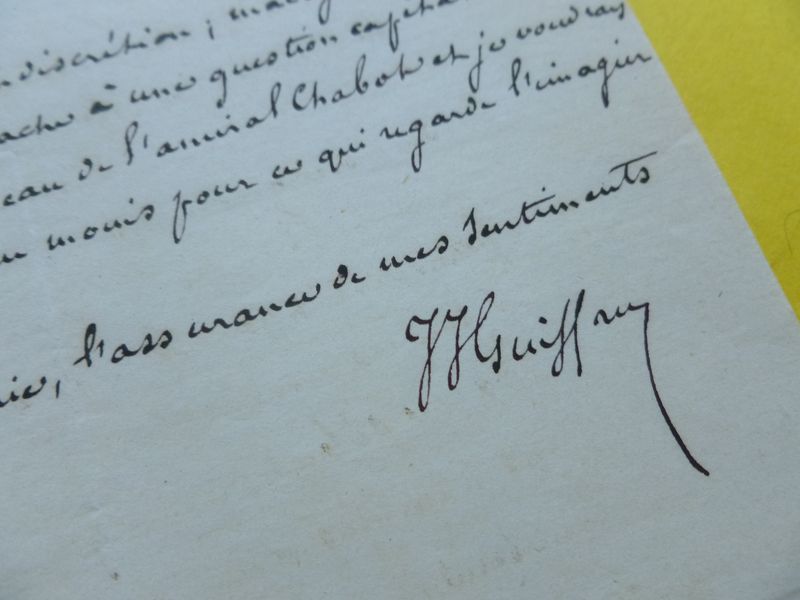 discrétion ; mais
ache à une question capita
eau de l'amiral Chabot et je voudrais
moins pour ce qui regarde l'imagier
l'assurance de mes sentiments
JJGuiffrey